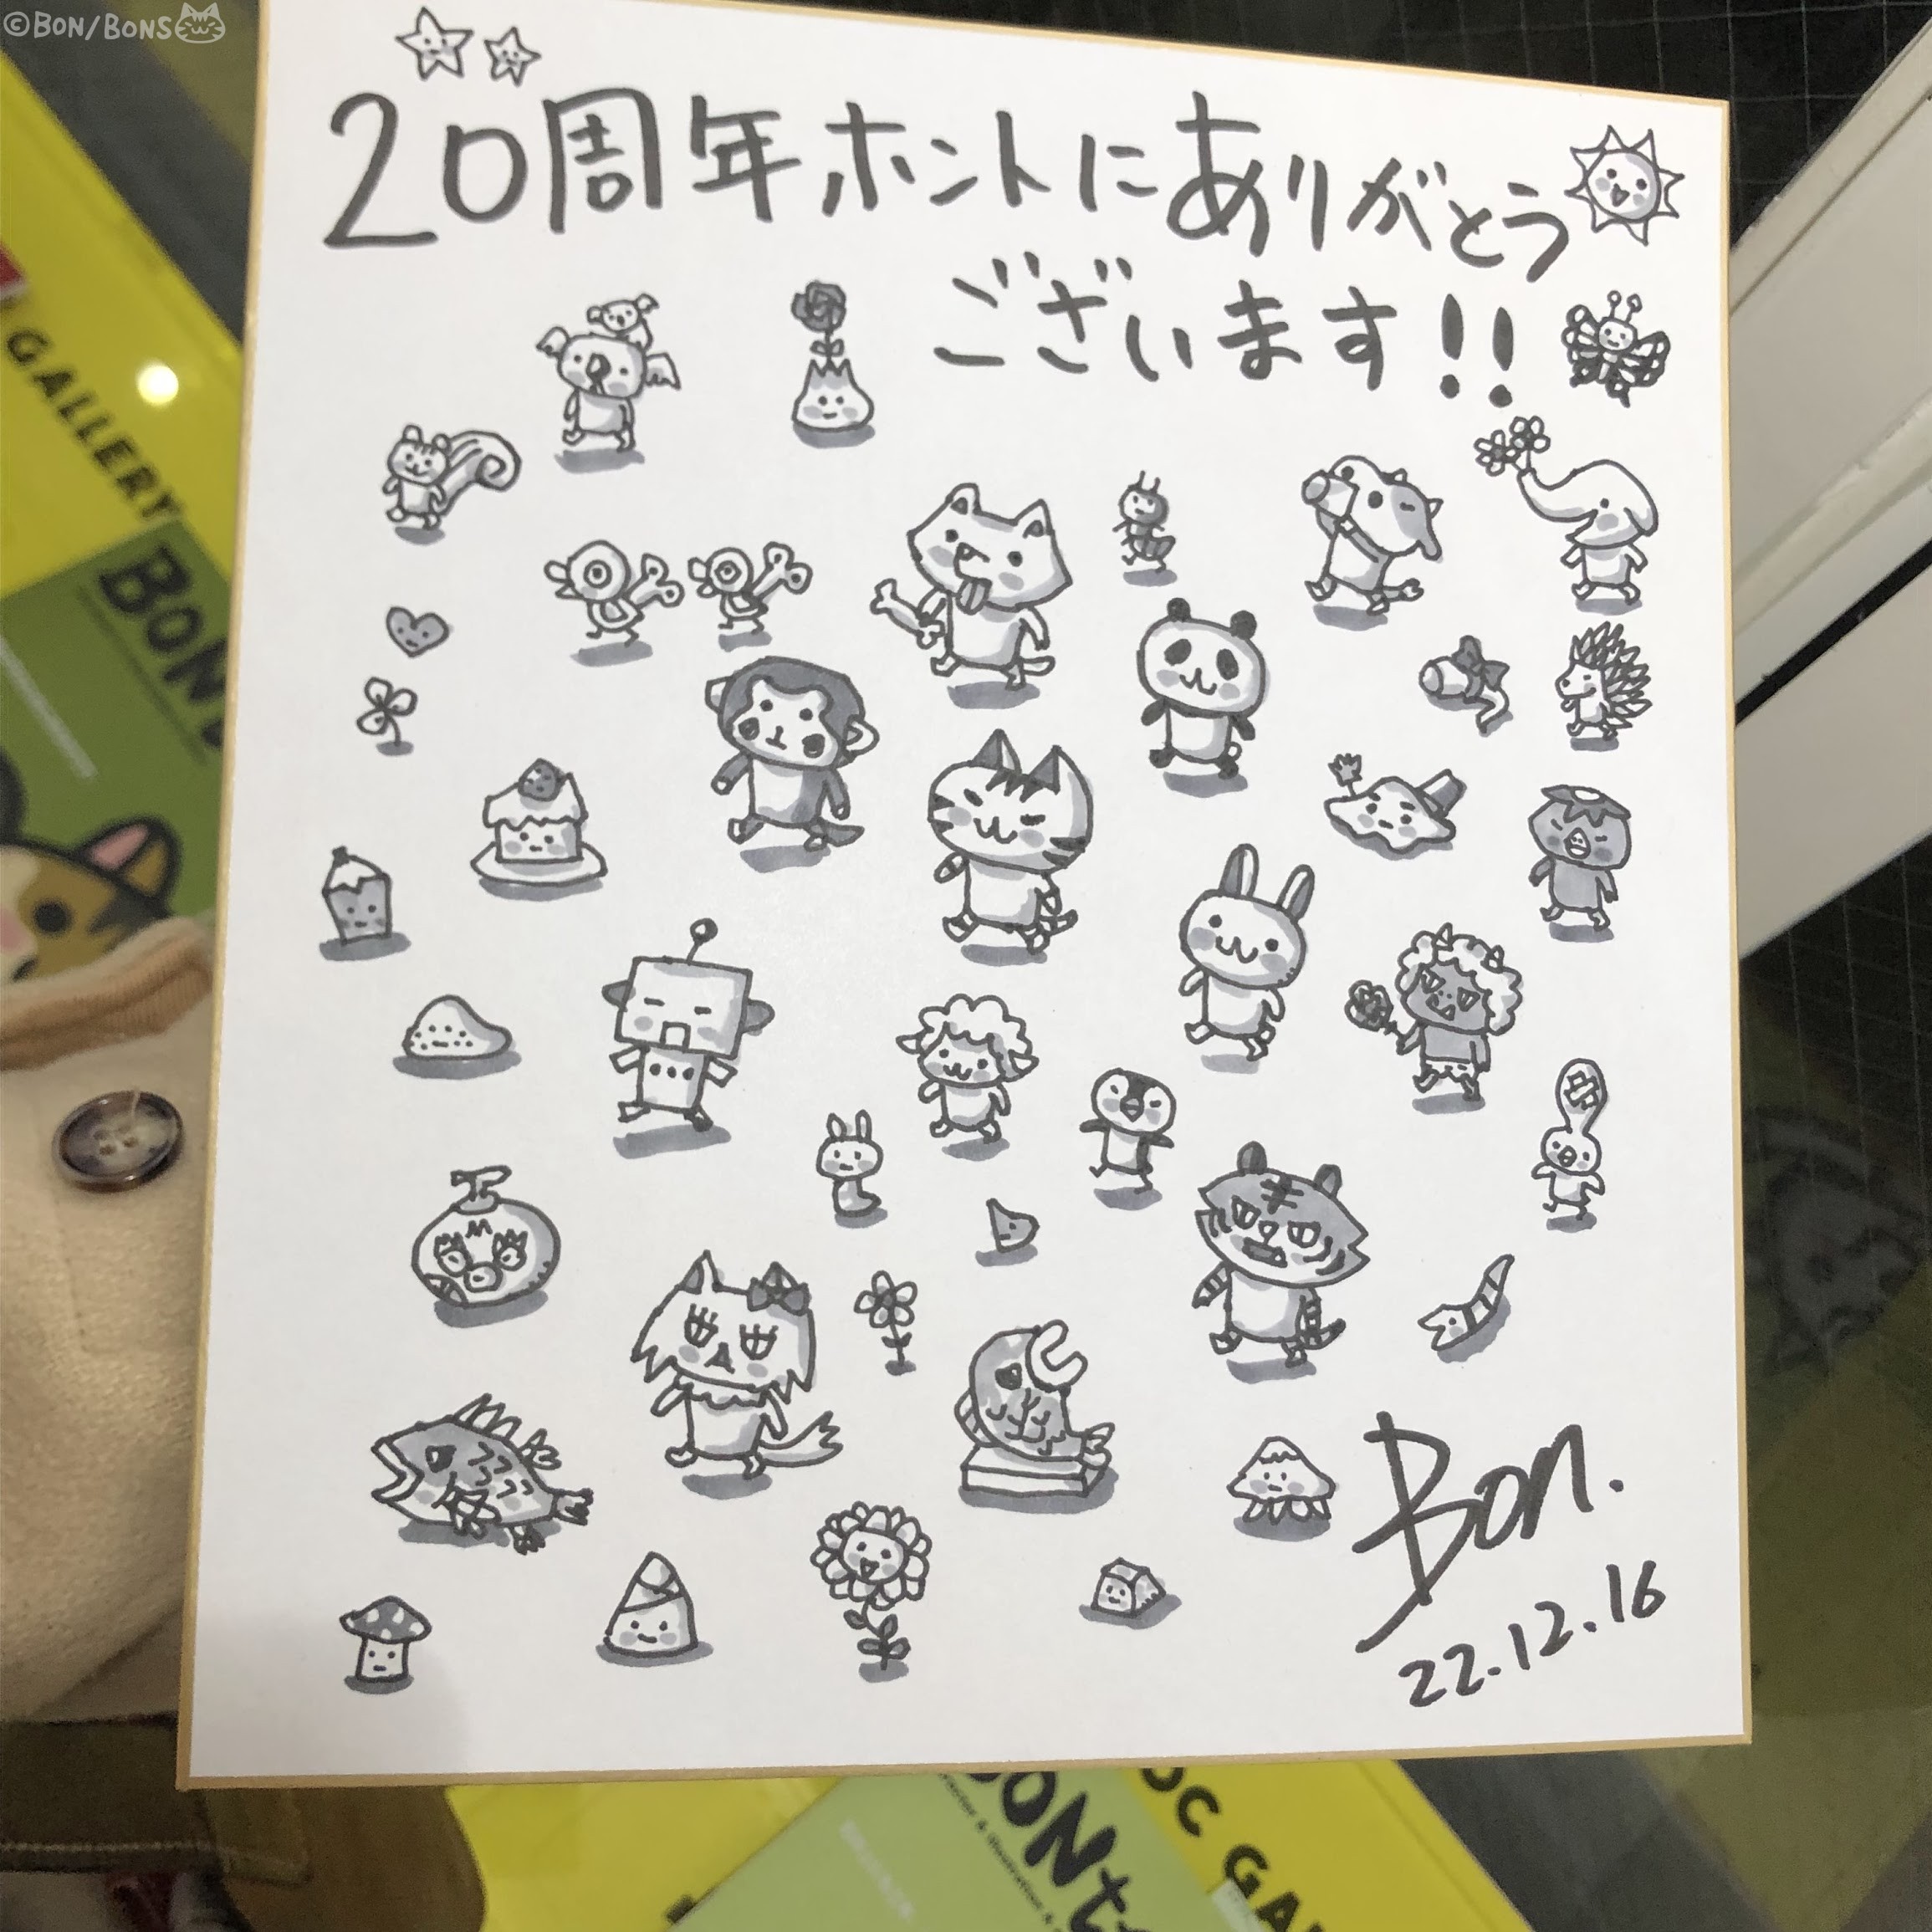 ©BON/BONS
20周年ホントにありがとう
ございます!!
GALLERY
BON
Bon.
22.12.16